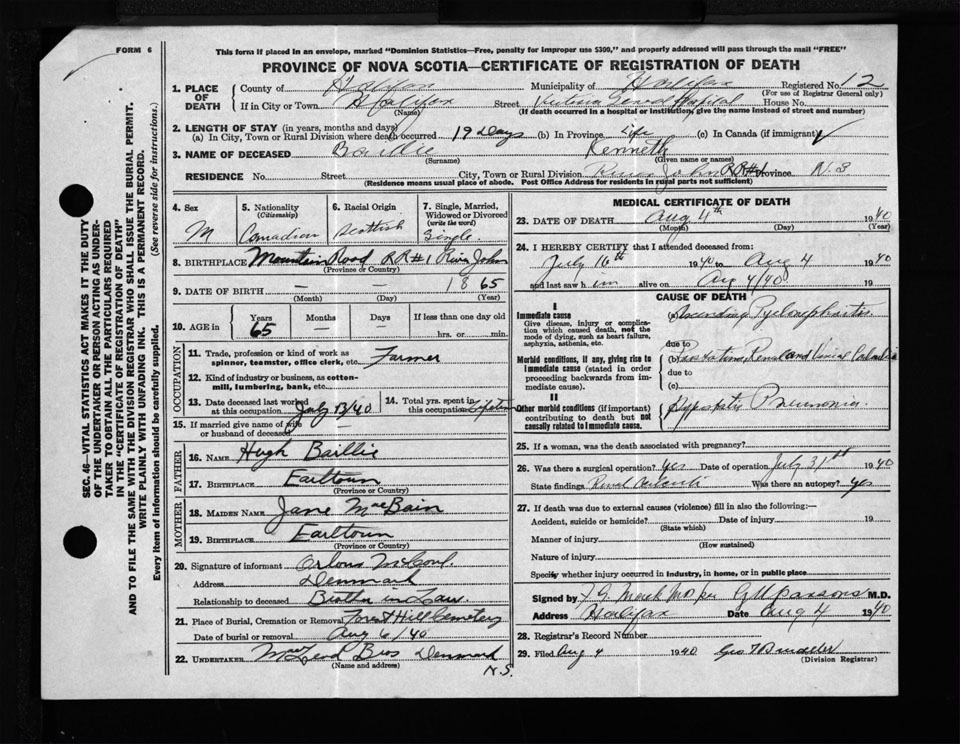 FORM 6
This form if placed in an envelope, marked "Dominion Statistics—Free, penalty for improper use $300," and properly addressed will pass through the mail "FREE"
PROVINCE OF NOVA SCOTIA—CERTIFICATE OF REGISTRATION OF DEATH
SEC. 46—VITAL STATISTICS ACT MAKES IT THE DUTY
OF THE UNDERTAKER OR PERSON ACTING AS UNDER-
TAKER TO OBTAIN ALL THE PARTICULARS REQUIRED
IN THE "CERTIFICATE OF REGISTRATION OF DEATH"
AND TO FILE THE SAME WITH THE DIVISION REGISTRAR WHO SHALL ISSUE THE BURIAL PERMIT.
WRITE PLAINLY WITH UNFADING INK. THIS IS A PERMANENT RECORD.
Every item of information should be carefully supplied. (See reverse side for instructions.)
1. PLACE OF DEATH
County of Halifax Municipality of Halifax Registered No. 12
(For use of Registrar General only)
If in City or Town Halifax Street Victoria General Hospital House No.
(Name) (If death occurred in a hospital or institution, give the name instead of street and number)
2. LENGTH OF STAY (in years, months and days)
(a) In City, Town or Rural Division where death occurred 19 Days (b) In Province Life (c) In Canada (if immigrant)
3. NAME OF DECEASED Baillie Kenneth
(Surname) (Given name or names)
RESIDENCE No. Street City, Town or Rural Division River John RR#1 Province N.S
(Residence means usual place of abode. Post Office Address for residents in rural parts not sufficient)
4. Sex M
5. Nationality (Citizenship) Canadian
6. Racial Origin Scottish
7. Single, Married, Widowed or Divorced (write the word) Single
8. BIRTHPLACE Mountain Road RR#1 River John
(Province or Country)
9. DATE OF BIRTH — — 1865
(Month) (Day) (Year)
10. AGE in Years 65 Months — Days — If less than one day old
hrs. or min.
OCCUPATION
11. Trade, profession or kind of work as spinner, teamster, office clerk, etc. Farmer
12. Kind of industry or business, as cotton-mill, lumbering, bank, etc.
13. Date deceased last worked at this occupation July 13/40
14. Total yrs. spent in this occupation Lifetime
15. If married give name of wife or husband of deceased
FATHER
16. NAME Hugh Baillie
17. BIRTHPLACE Earltown
(Province or Country)
MOTHER
18. MAIDEN NAME Jane MacBain
19. BIRTHPLACE Earltown
(Province or Country)
20. Signature of informant
Address Denmark
Relationship to deceased Brother in Law
21. Place of Burial, Cremation or Removal Forest Hill Cemetery
Date of burial or removal Aug 6/40
22. UNDERTAKER MacLeod Bros Denmark
(Name and address) N.S.
MEDICAL CERTIFICATE OF DEATH
23. DATE OF DEATH Aug 4th 1940
(Month) (Day) (Year)
24. I HEREBY CERTIFY that I attended deceased from:
July 16th 1940 to Aug 4 1940
and last saw him alive on Aug 4/40 19
CAUSE OF DEATH
I
Immediate cause (a) Ascending Pyelonephritis
Give disease, injury or complication which caused death, not the mode of dying, such as heart failure, asphyxia, asthenia, etc.
due to
Morbid conditions, if any, giving rise to immediate cause (stated in order proceeding backwards from immediate cause).
(b) Renal and
due to
(c)
II
Other morbid conditions (if important) contributing to death but not causally related to immediate cause.
Hypostatic Pneumonia
25. If a woman, was the death associated with pregnancy?
26. Was there a surgical operation? Yes Date of operation July 31st 1940
State findings Renal Calculi Was there an autopsy? Yes
27. If death was due to external causes (violence) fill in also the following:—
Accident, suicide or homicide? Date of injury 19
(State which)
Manner of injury
(How sustained)
Nature of injury
Specify whether injury occurred in industry, in home, or in public place
Signed by Parsons M.D.
Address Halifax Date Aug 4 1940
28. Registrar's Record Number
29. Filed Aug 4 1940 Geo
(Division Registrar)